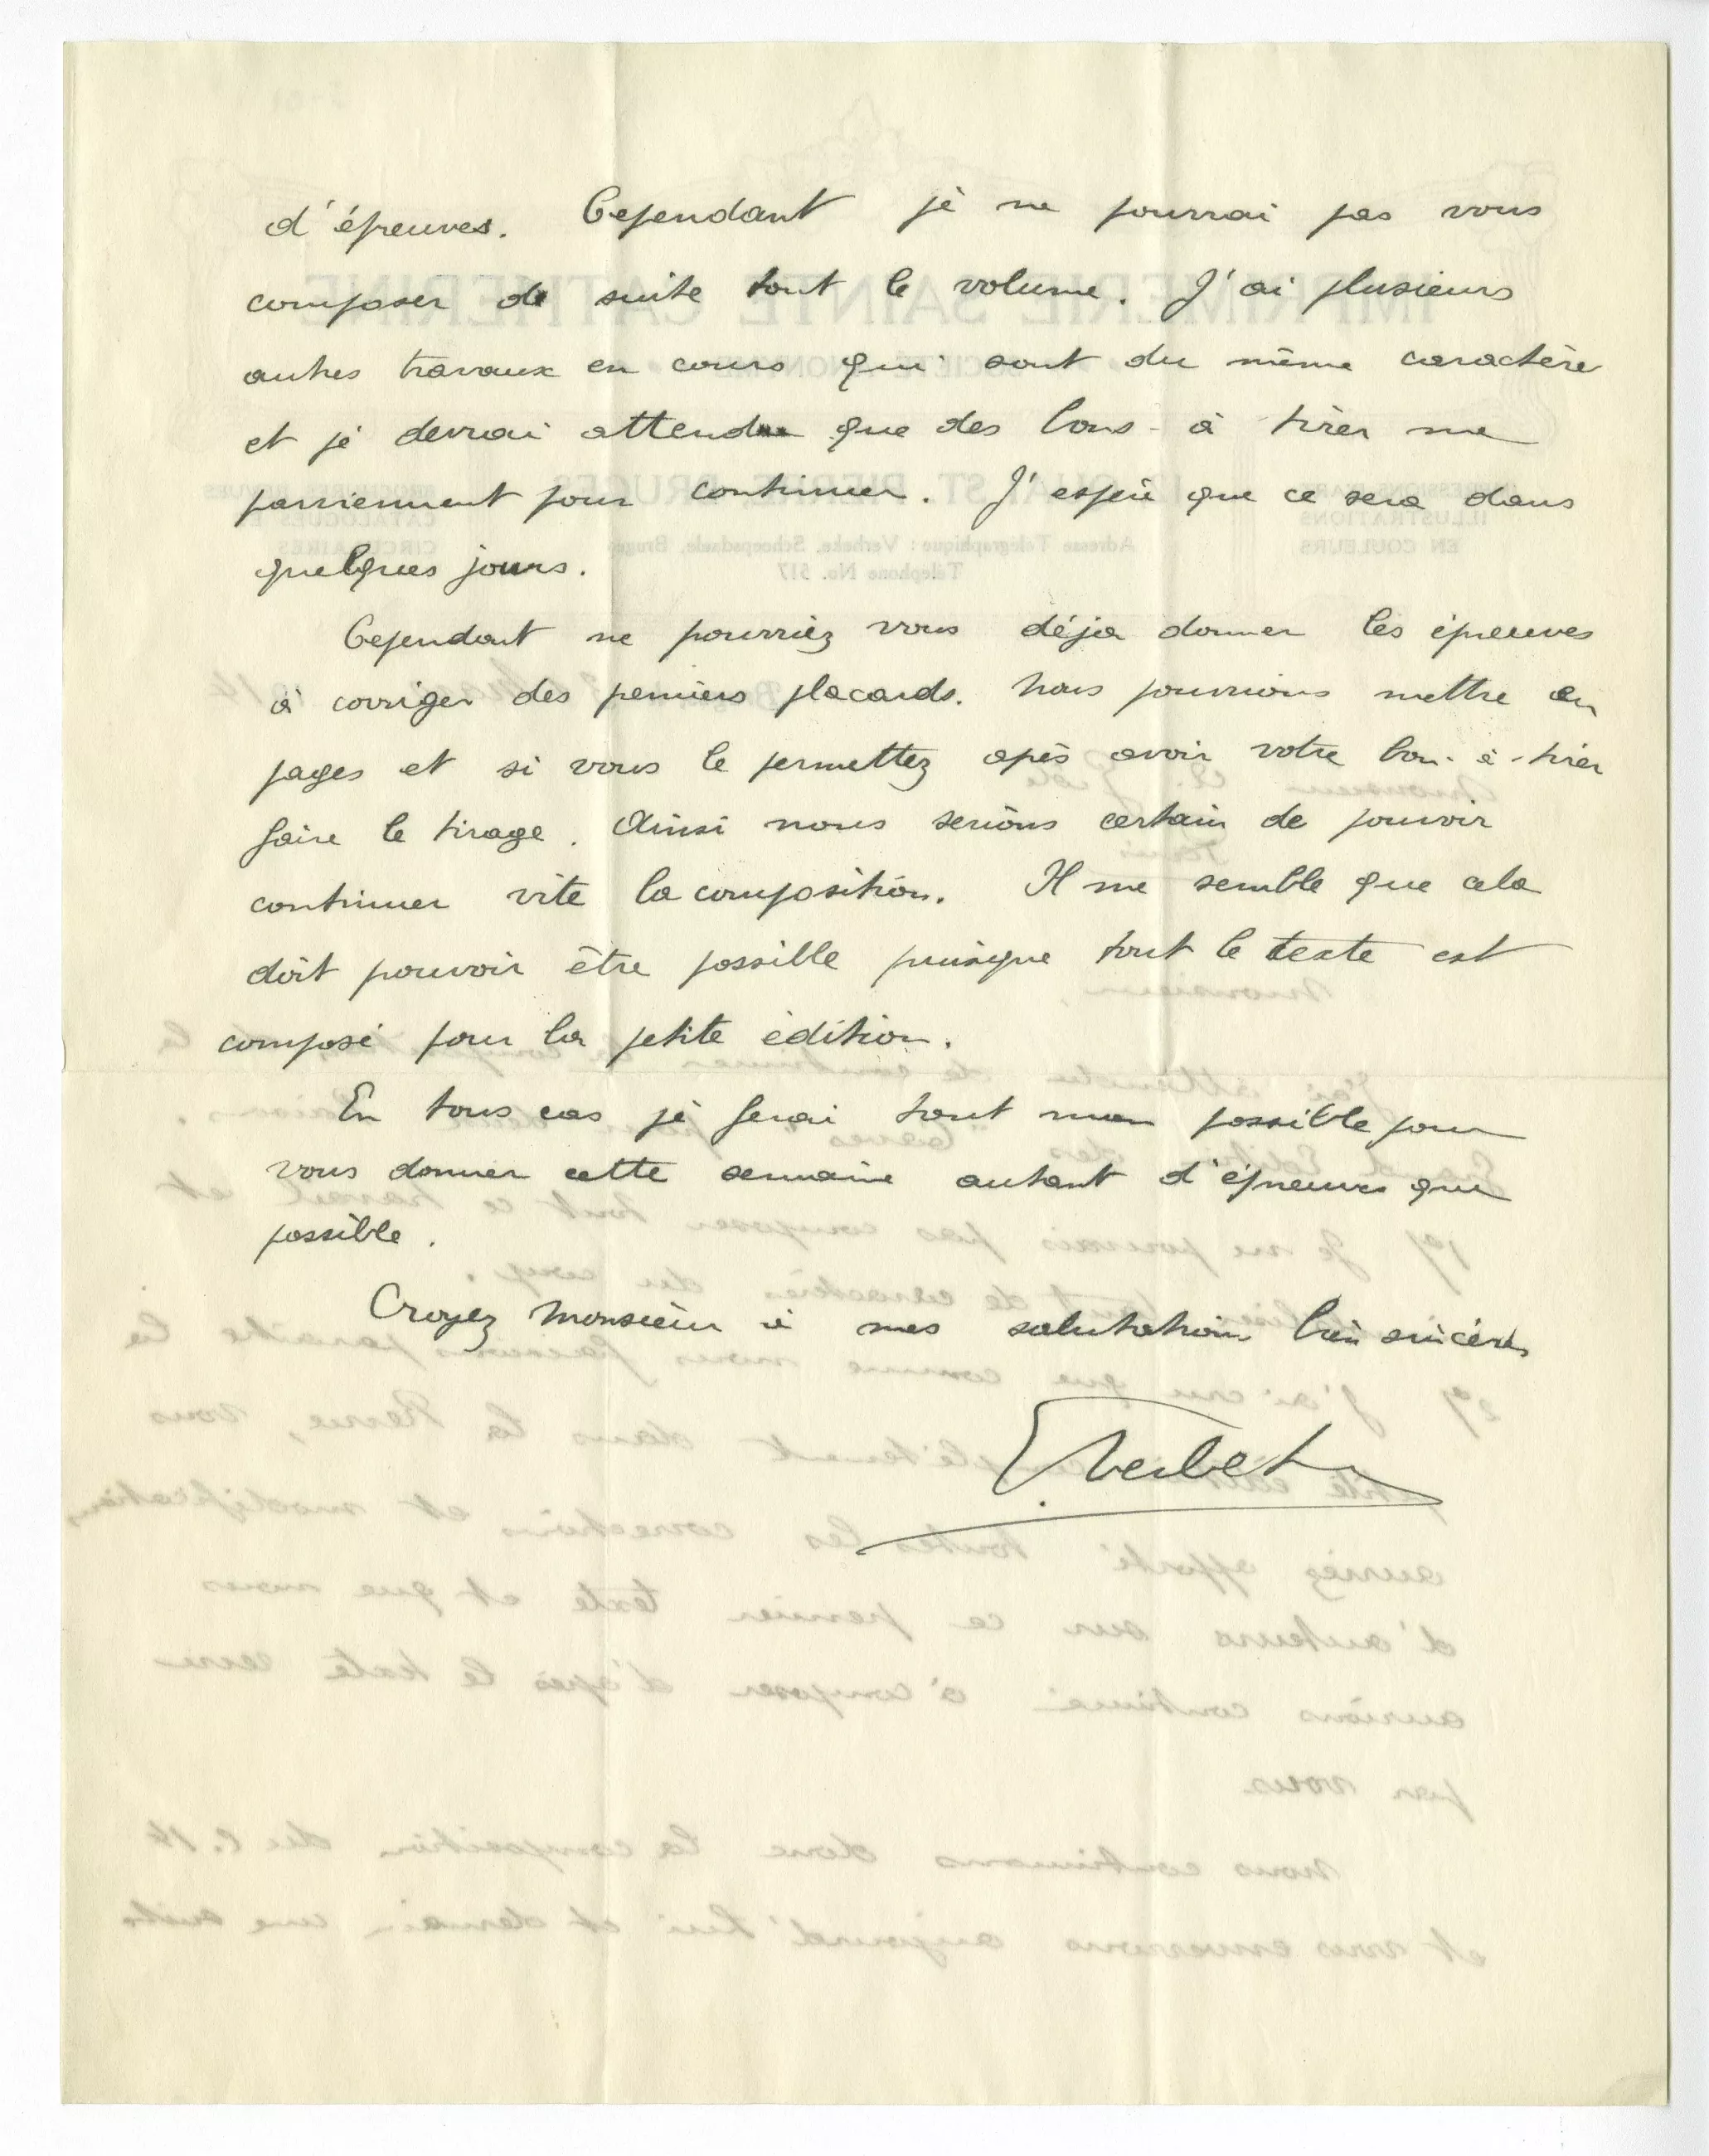 d'épreuves. Cependant je ne pourrai pas vous
composer de suite tout le volume. J'ai plusieurs
autres travaux en cours qui sont du même caractère
et je devrai attendre que des bons-à tirer me
parviennent pour continuer. J'espère que ce sera dans
quelques jours.
Cependant ne pourriez vous déjà donner les épreuves
à corriger des premiers placards. Nous pourrions mettre en
pages et si vous le permettez après avoir votre bon-à-tirer
faire le tirage. Ainsi nous serions certain de pouvoir
continuer vite la composition. Il me semble que cela
doit pouvoir être possible puisque tout le texte est
composé pour la petite édition.
En tous cas je ferai tout mon possible pour
vous donner cette semaine autant d'épreuves que
possible.
Croyez Monsieur à mes salutations bien sincères